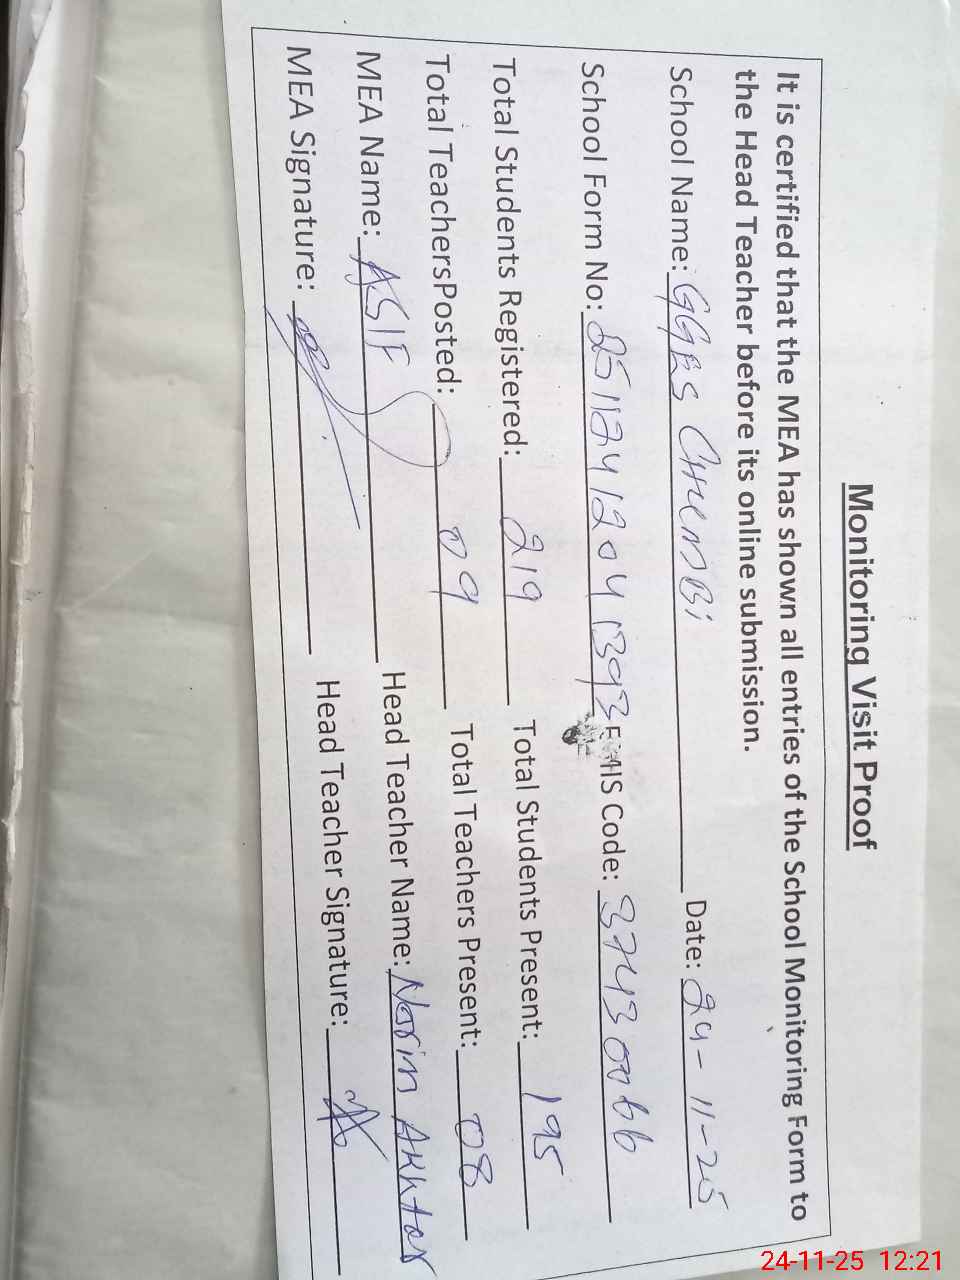 Monitoring Visit Proof
It is certified that the MEA has shown all entries of the School Monitoring Form to
the Head Teacher before its online submission.
School Name: GGES CHUMBI Date: 24-11-25
School Form No: 251124 1204 1393 EMIS Code: 37430066
Total Students Registered: 219 Total Students Present: 195
Total TeachersPosted: 09 Total Teachers Present: 08
MEA Name: ASIF Head Teacher Name: Nosrin Akhtar
MEA Signature: Head Teacher Signature:
24-11-25 12:21